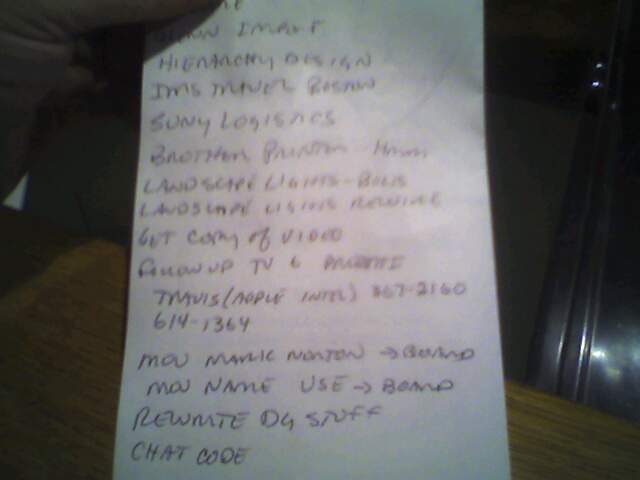 HIERARCHY DESIGN
IMS TRAVEL BOSTON
SUNY LOGISTICS
BROTHER PRINTER -
LANDSCAPE LIGHTS - BULBS
LANDSCAPE LIGHTS REWIRE
GET COPY OF VIDEO
FOLLOW UP TV &
TRAVIS (APPLE INTEL) 367-2160
614-1364
MOU MARK NORTON → BOARD
MOU NAME USE → BOARD
REWRITE DG STUFF
CHAT CODE